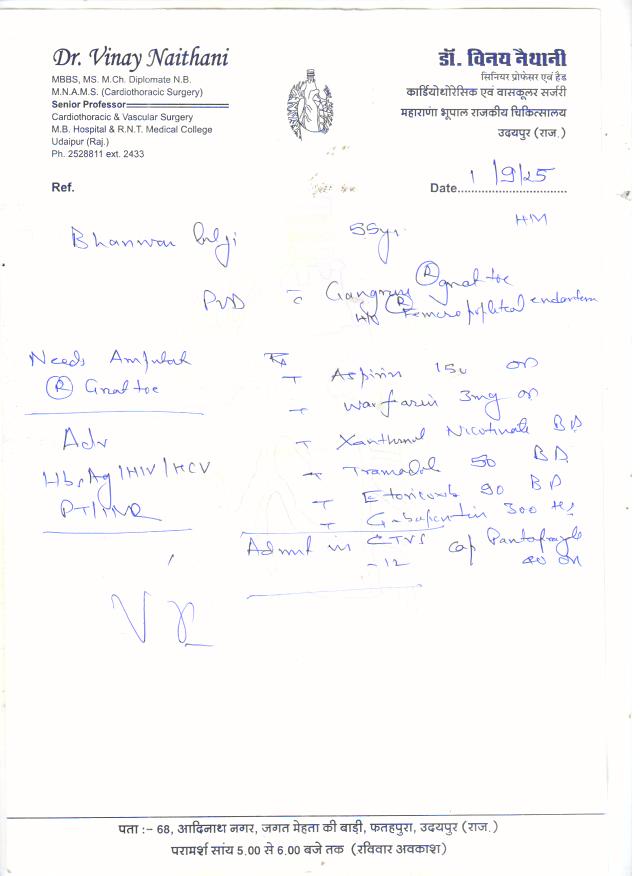 Dr. Vinay Naithani
MBBS, MS. M.Ch. Diplomate N.B.
M.N.A.M.S. (Cardiothoracic Surgery)
Senior Professor
Cardiothoracic & Vascular Surgery
M.B. Hospital & R.N.T. Medical College
Udaipur (Raj.)
Ph. 2528811 ext. 2433
डॉ. विनय नैथानी
सिनियर प्रोफेसर एवं हैड
कार्डियोथोरेसिक एवं वासकूलर सर्जरी
महाराणा भूपाल राजकीय चिकित्सालय
उदयपुर (राज.)
Ref.
Date 1/9/25
HM
Bhanwar 55yr
PVD c Gangrene (R) great toe
H/o (R) Femoro popliteal
Needs
(R) Great toe
Adv
HbsAg/HIV/HCV
PT/INR
Rx
T Aspirin 150 OD
T Warfarin 3mg OD
T Xanthinol Nicotinate BD
T Tramadol 50 BD
T 90 BD
T Gabapentin 300
Cap
Admit in CTVS
-12
पता :– 68, आदिनाथ नगर, जगत मेहता की बाड़ी, फतहपुरा, उदयपुर (राज.)
परामर्श सांय 5.00 से 6.00 बजे तक (रविवार अवकाश)